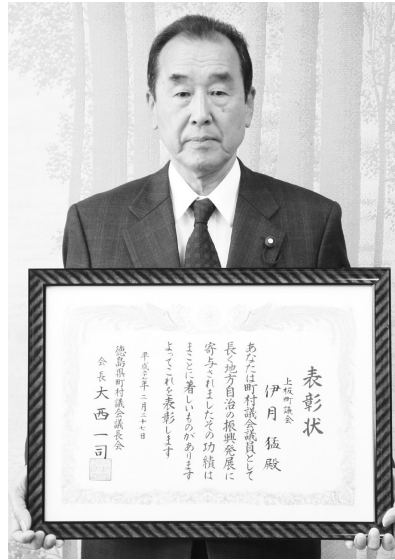 表彰状
上板町議会
伊月猛殿
あなたは町村議会議員として
長く地方自治の振興発展に
寄与されましたその功績は
まことに著しいものがあります
よってこれを表彰します
平成二十六年二月二十七日
徳島県町村議会議長会
会長大西一司